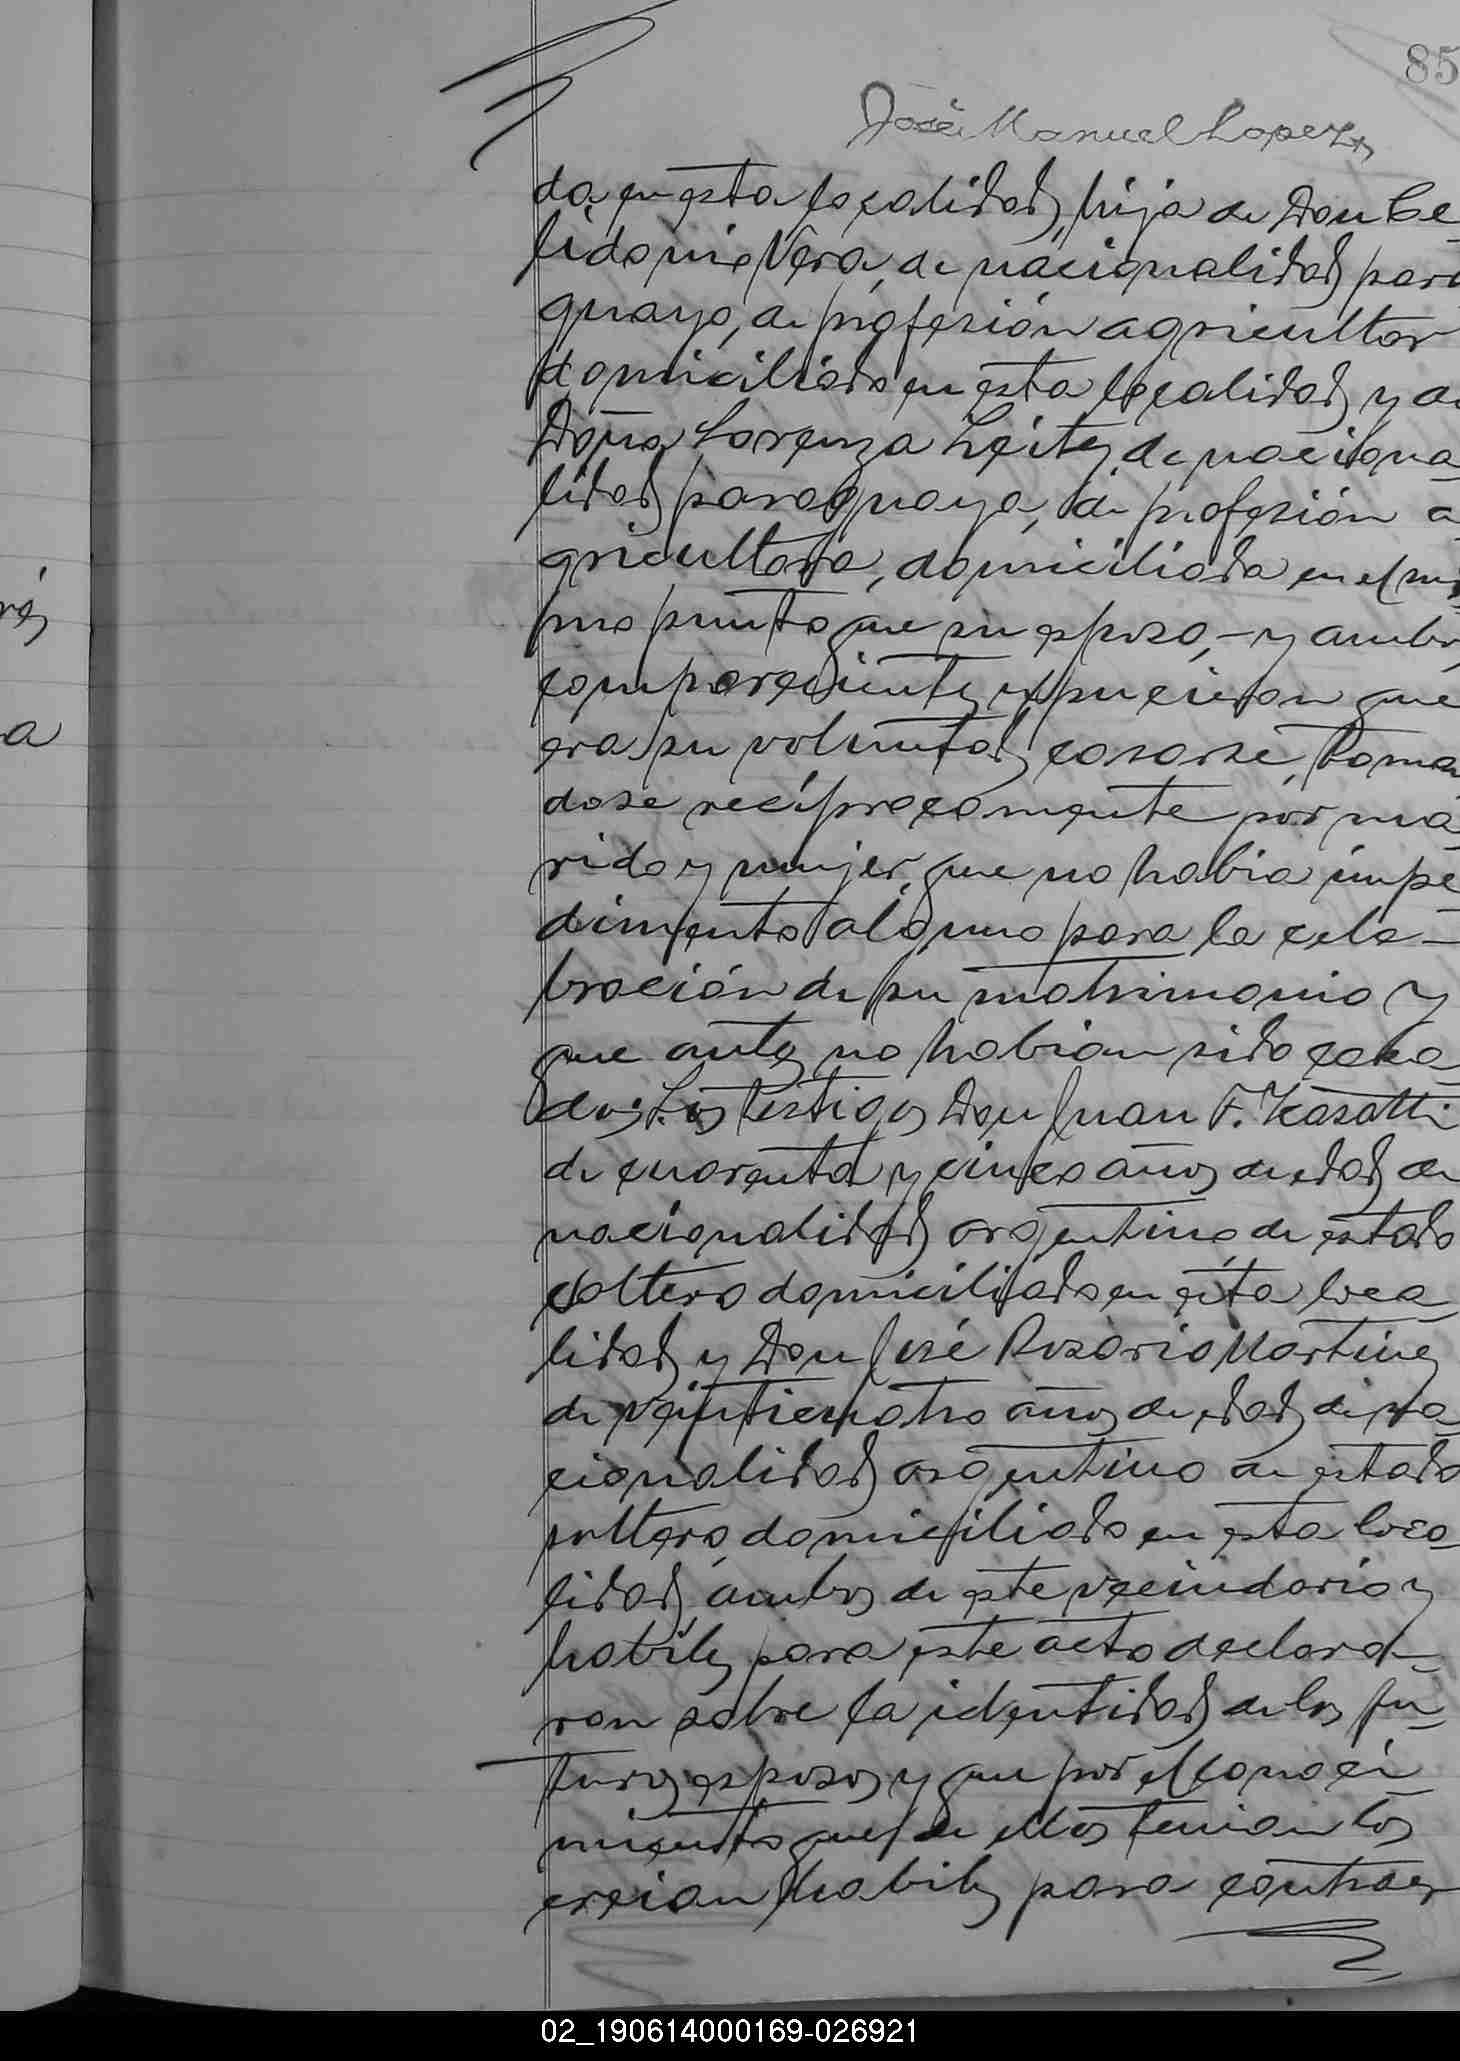 85
José Manuel Lopez
da en esta localidad, hija de Don Ce-
lidonio Vera, de nacionalidad para
guayo, de profesión agricultor
domiciliado en esta localidad y de
Doña Lorenza Leites, de naciona
lidad paraguaya, de profesión a
gricultora, domiciliada en el mis
mo punto que su esposo, - y ambos
comparecientes expucieron que
era su voluntad casarse, toman
dose recíprocamente por ma
rido y mujer, que no habia impe
dimento alguno para la cele-
bración de su matrimonio y
que antes no habian sido casa
dos; Los testigos Don Juan F. Kasatti
de cuarenta y cinco años de edad de
nacionalidad argentino, de estado
soltero domiciliado en esta loca
lidad y Don José Rosario Martinez
de veinticuatro años de edad de na
cionalidad argentino de estado
soltero, domiciliado en esta loca
lidad, ambos de este vecindario y
habiles para este acto declara-
ron sobre la identidad de los fu-
turos esposos y que por el conoci
miento que de ellos tenian los
creian habiles para contraer
rés
a
02_190614000169-026921